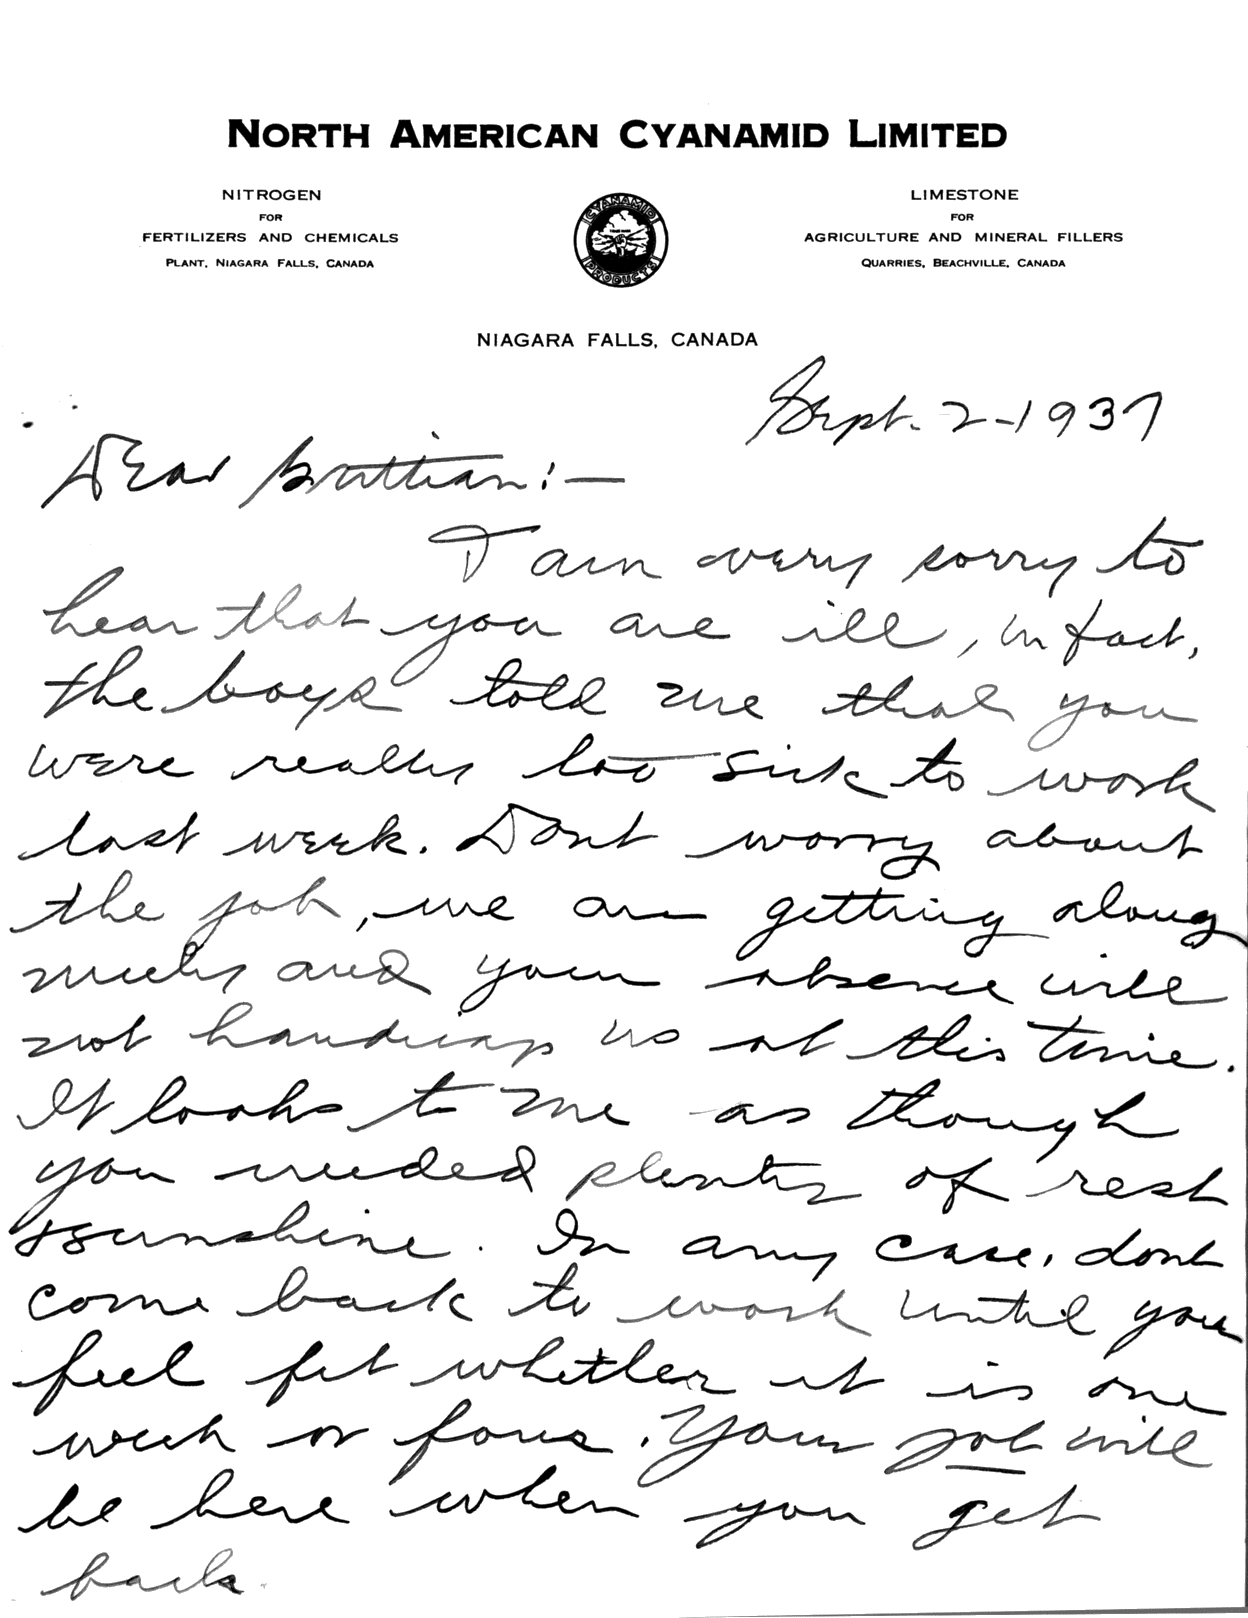 NORTH AMERICAN CYANAMID LIMITED
NITROGEN
FOR
FERTILIZERS AND CHEMICALS
PLANT, NIAGARA FALLS, CANADA
CYANAMID
TRADE MARK
PRODUCTS
LIMESTONE
FOR
AGRICULTURE AND MINERAL FILLERS
QUARRIES, BEACHVILLE, CANADA
NIAGARA FALLS, CANADA
Sept. 2-1937
Dear :—
I am very sorry to
hear that you are ill, in fact,
the boys told me that you
were really too sick to work
last week. Dont worry about
the job, we are getting along
nicely and your absence will
not handicap us at this time.
It looks to me as though
you needed plenty of rest
& sunshine. In any case, dont
come back to work until you
feel fit whether it is one
week or four. Your job will
be here when you get
back.